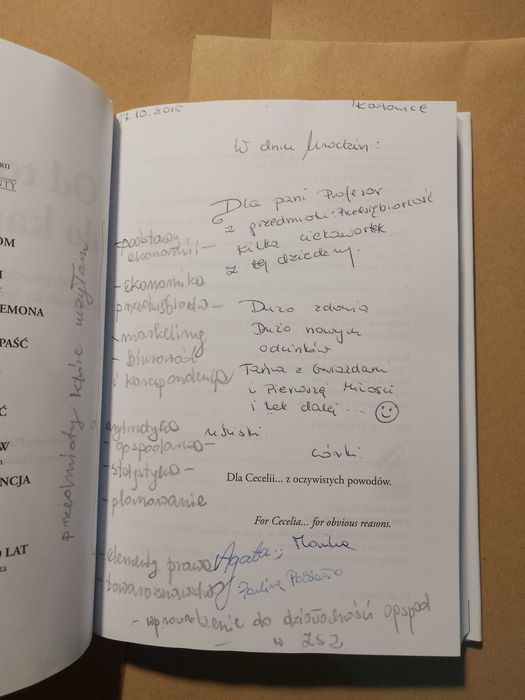 17.10.2015 Katowice
W dniu Urodzin:
Dla pani Profesor
z przedmiotu: Przedsiębiorczość
kilka ciekawostek
z tej dziedziny.
Dużo zdrowia
Dużo nowych
odcinków
Tańca z Gwiazdami
i Pierwszej Miłości
i tak dalej ...
uściski
córki:
Dla Cecelii... z oczywistych powodów.
For Cecelia... for obvious reasons.
Agata, Monika
Paulina
przedmioty które uczyłam
podstawy
ekonomii -
- ekonomika
przedsiębiorstw -
- marketing
- biurowość
i korespondencja
arytmetyka
- gospodarcza -
- statystyka -
- planowanie
- elementy prawa
- towaroznawstwo
- wprowadzenie do działalności gospod
- w ZSZ
RII
NTY
OM
I
EMONA
PAŚĆ
Ć
W
NCJA
0 LAT